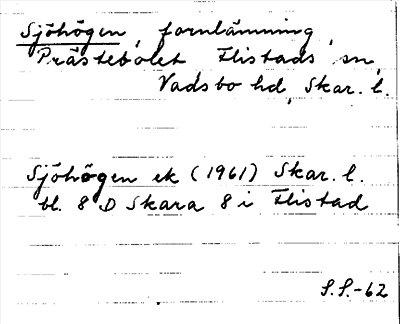 Sjöhögen, fornlämning,
Prästebolet Flistads sn,
Vadsbo hd, Skar. l.
Sjöhögen ek (1961) Skar. l.
bl. 8 D Skara 8 i Flistad
S.S.-62